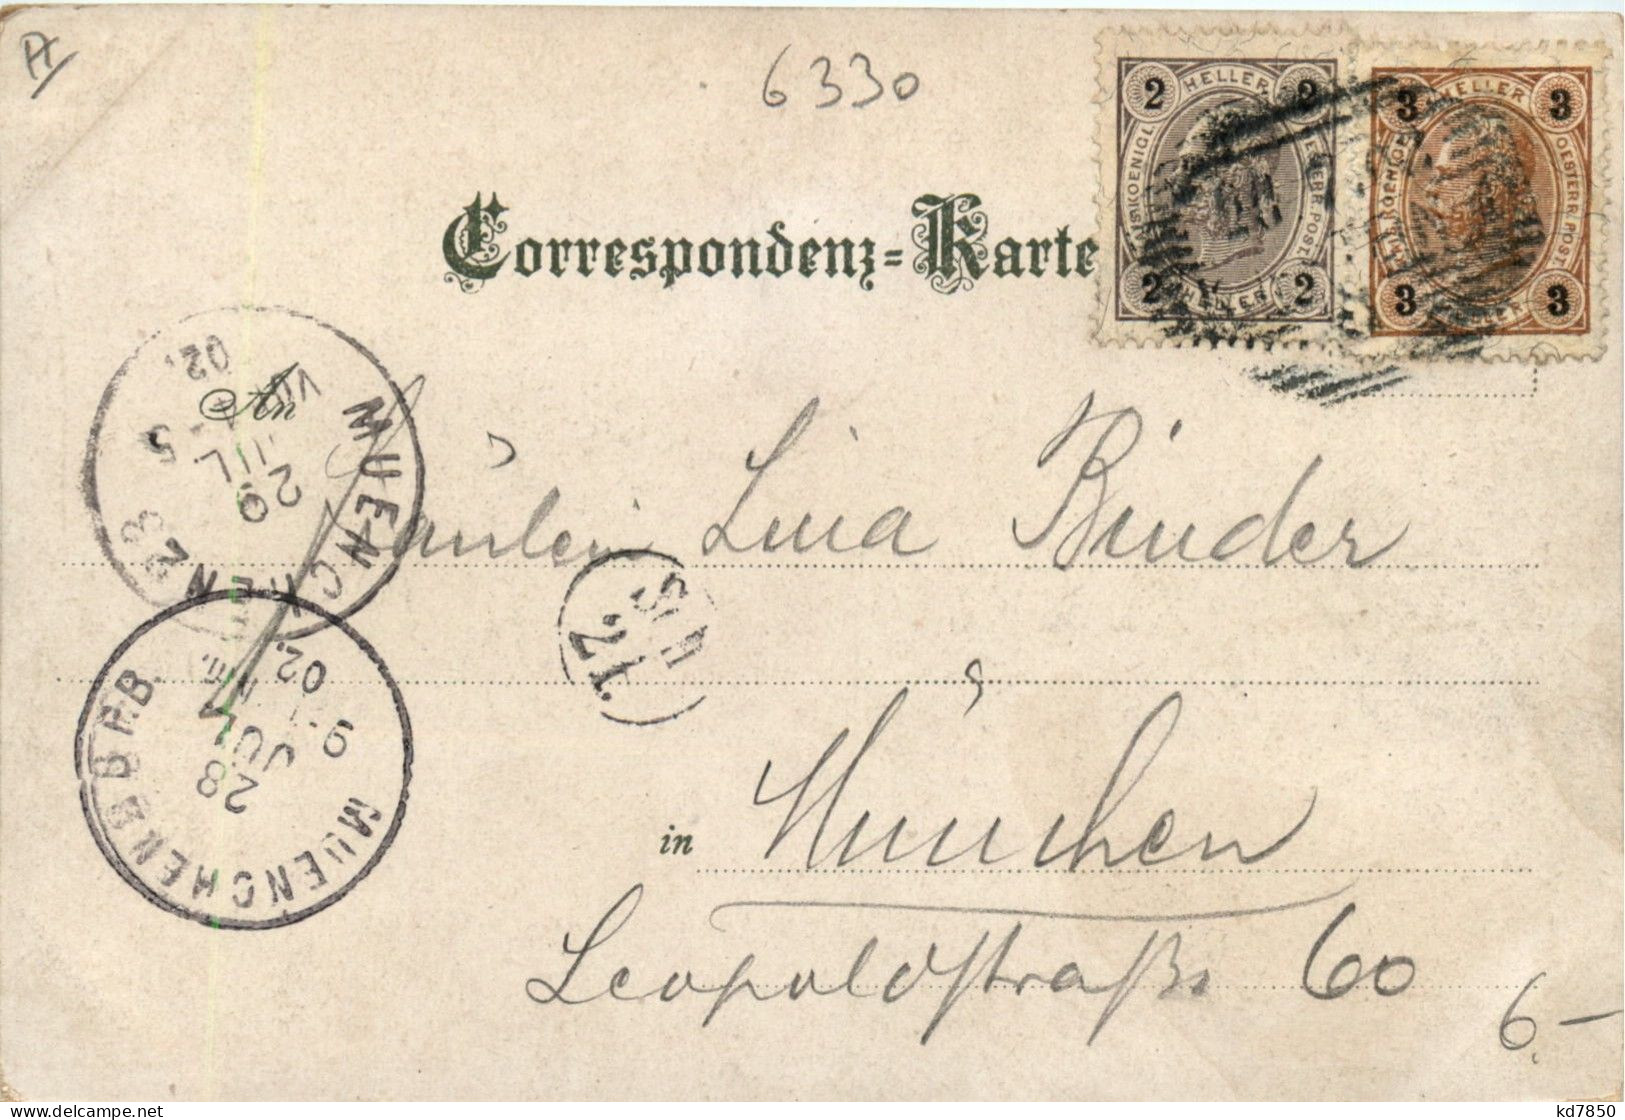 A
6330
2 HELLER 2
KAISKOENIGL. OESTERR. POST.
2 HELLER 2
3 HELLER 3
OESTERR. POST.
3 HELLER 3
Correspondenz-Karte
An
MUENCHEN 23
29
JUL
5
02.
Fräulein Lina Binder
21.
MUENCHEN B.P.B.
28
JUL
9
02.
in München
Leopoldstraße 60
6.-
kd7850